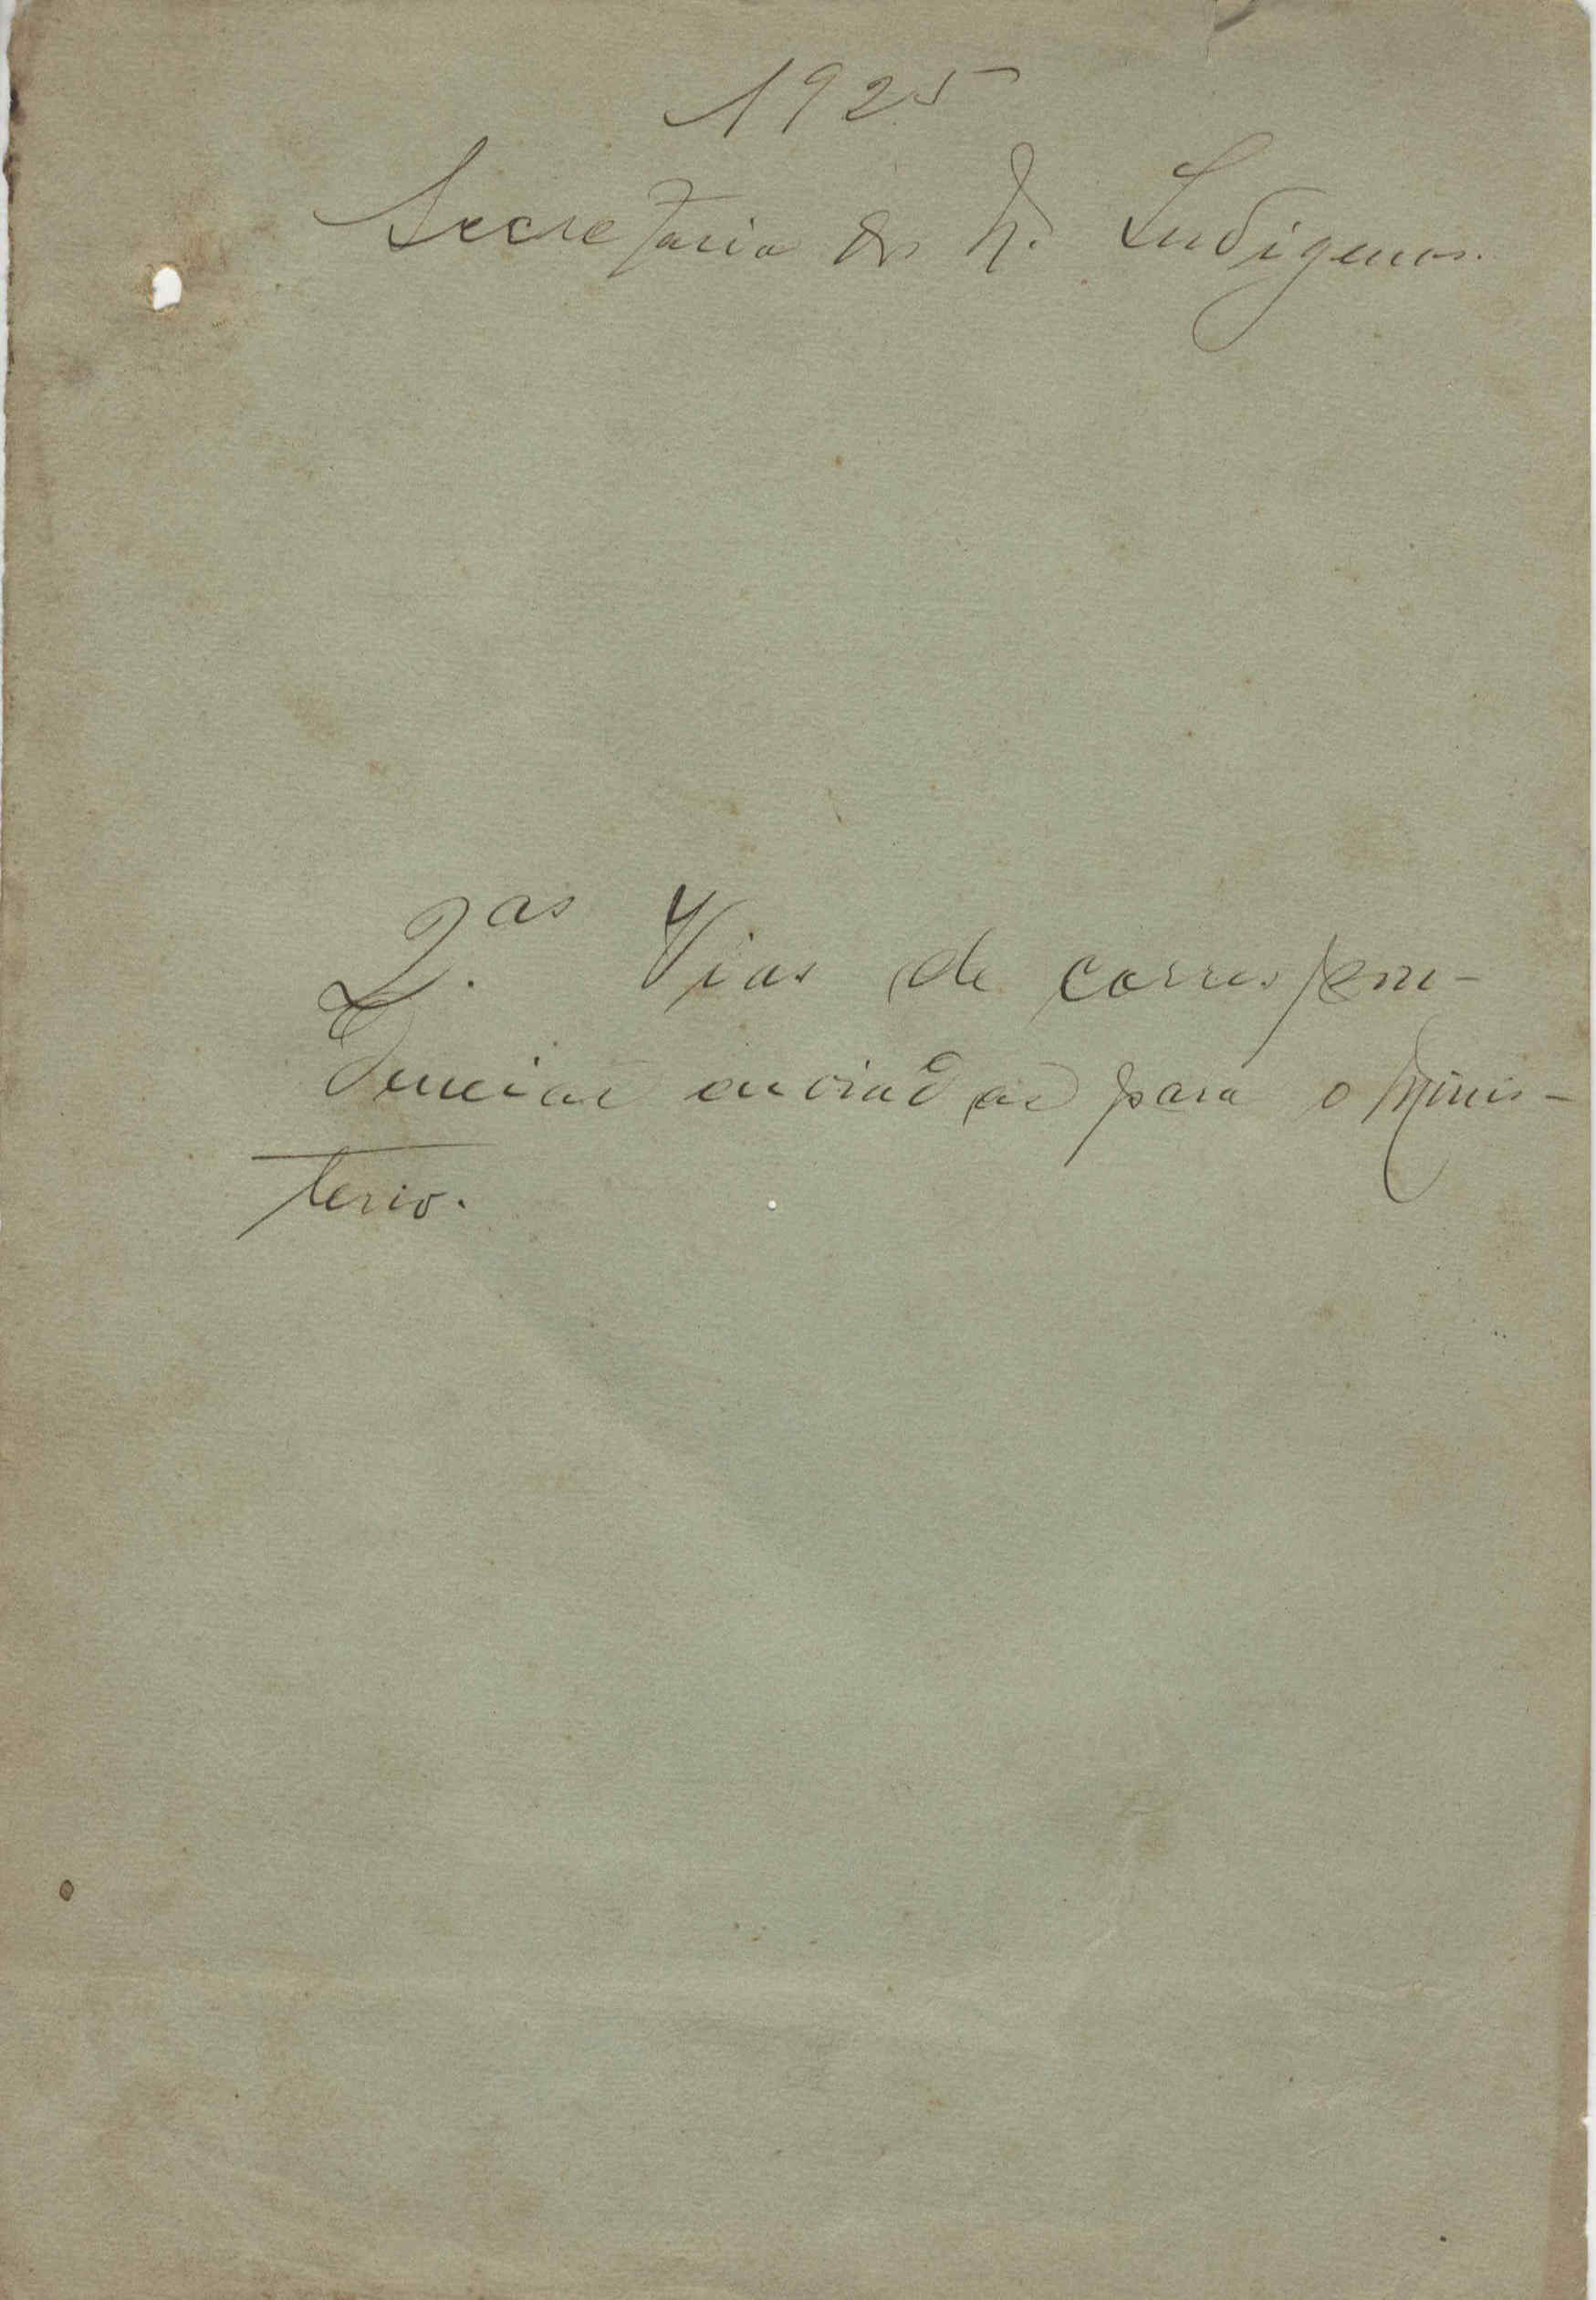 1925
Secretaria dos N. Indigenas.
2.as Vias de correspon-
dencias enviadas para o Minis-
terio.